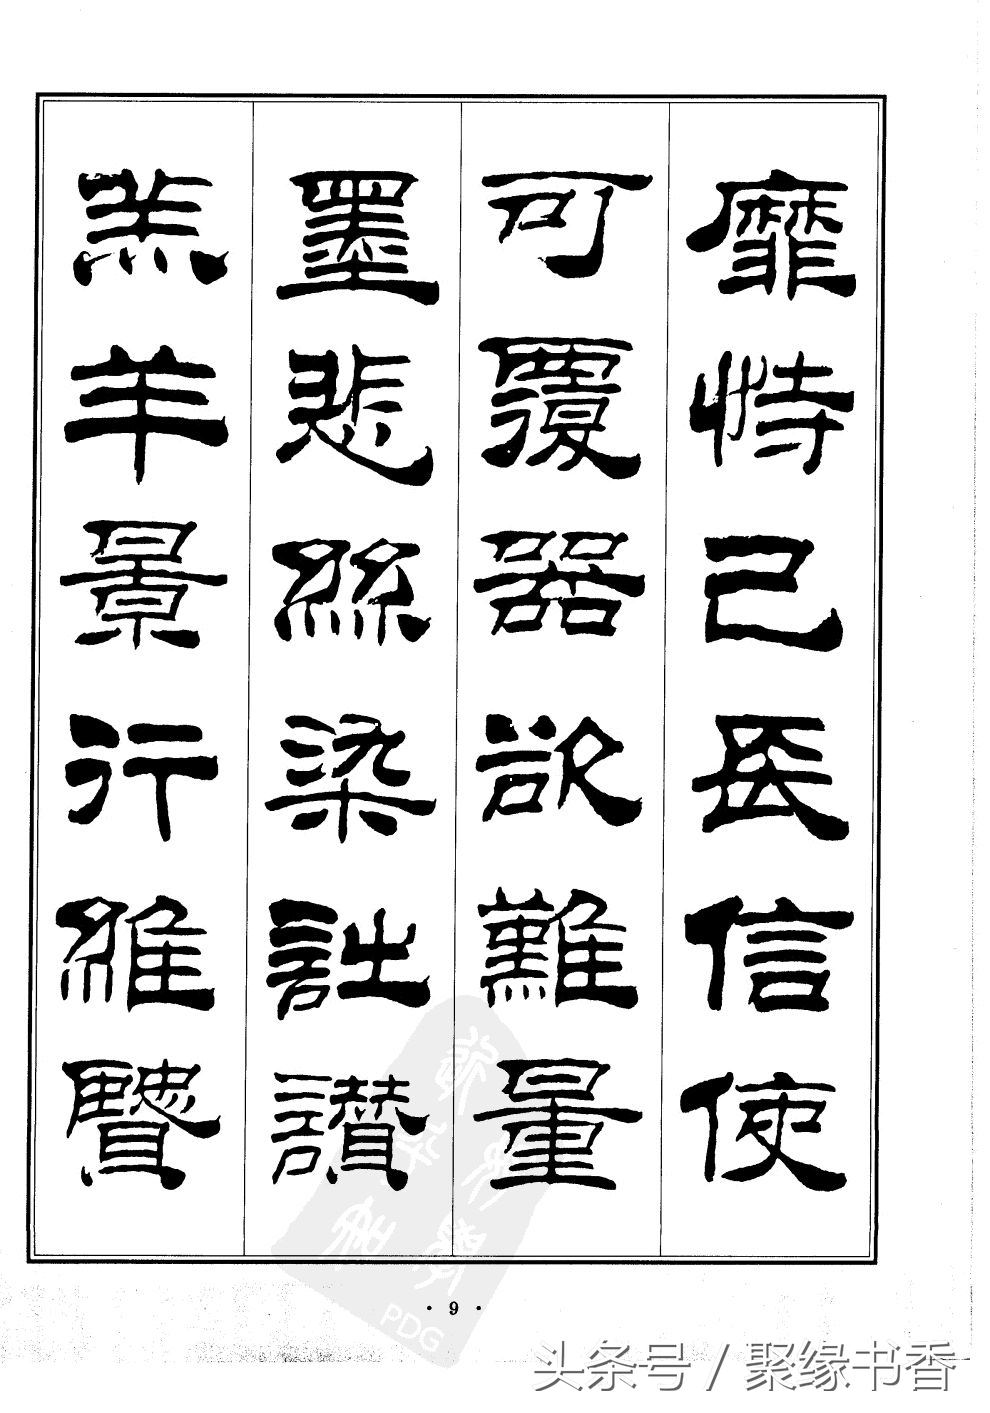 靡恃己長信使
可覆器欲難量
墨悲絲染詩讚
羔羊景行維賢
· 9 ·
PDG
头条号 / 聚缘书香